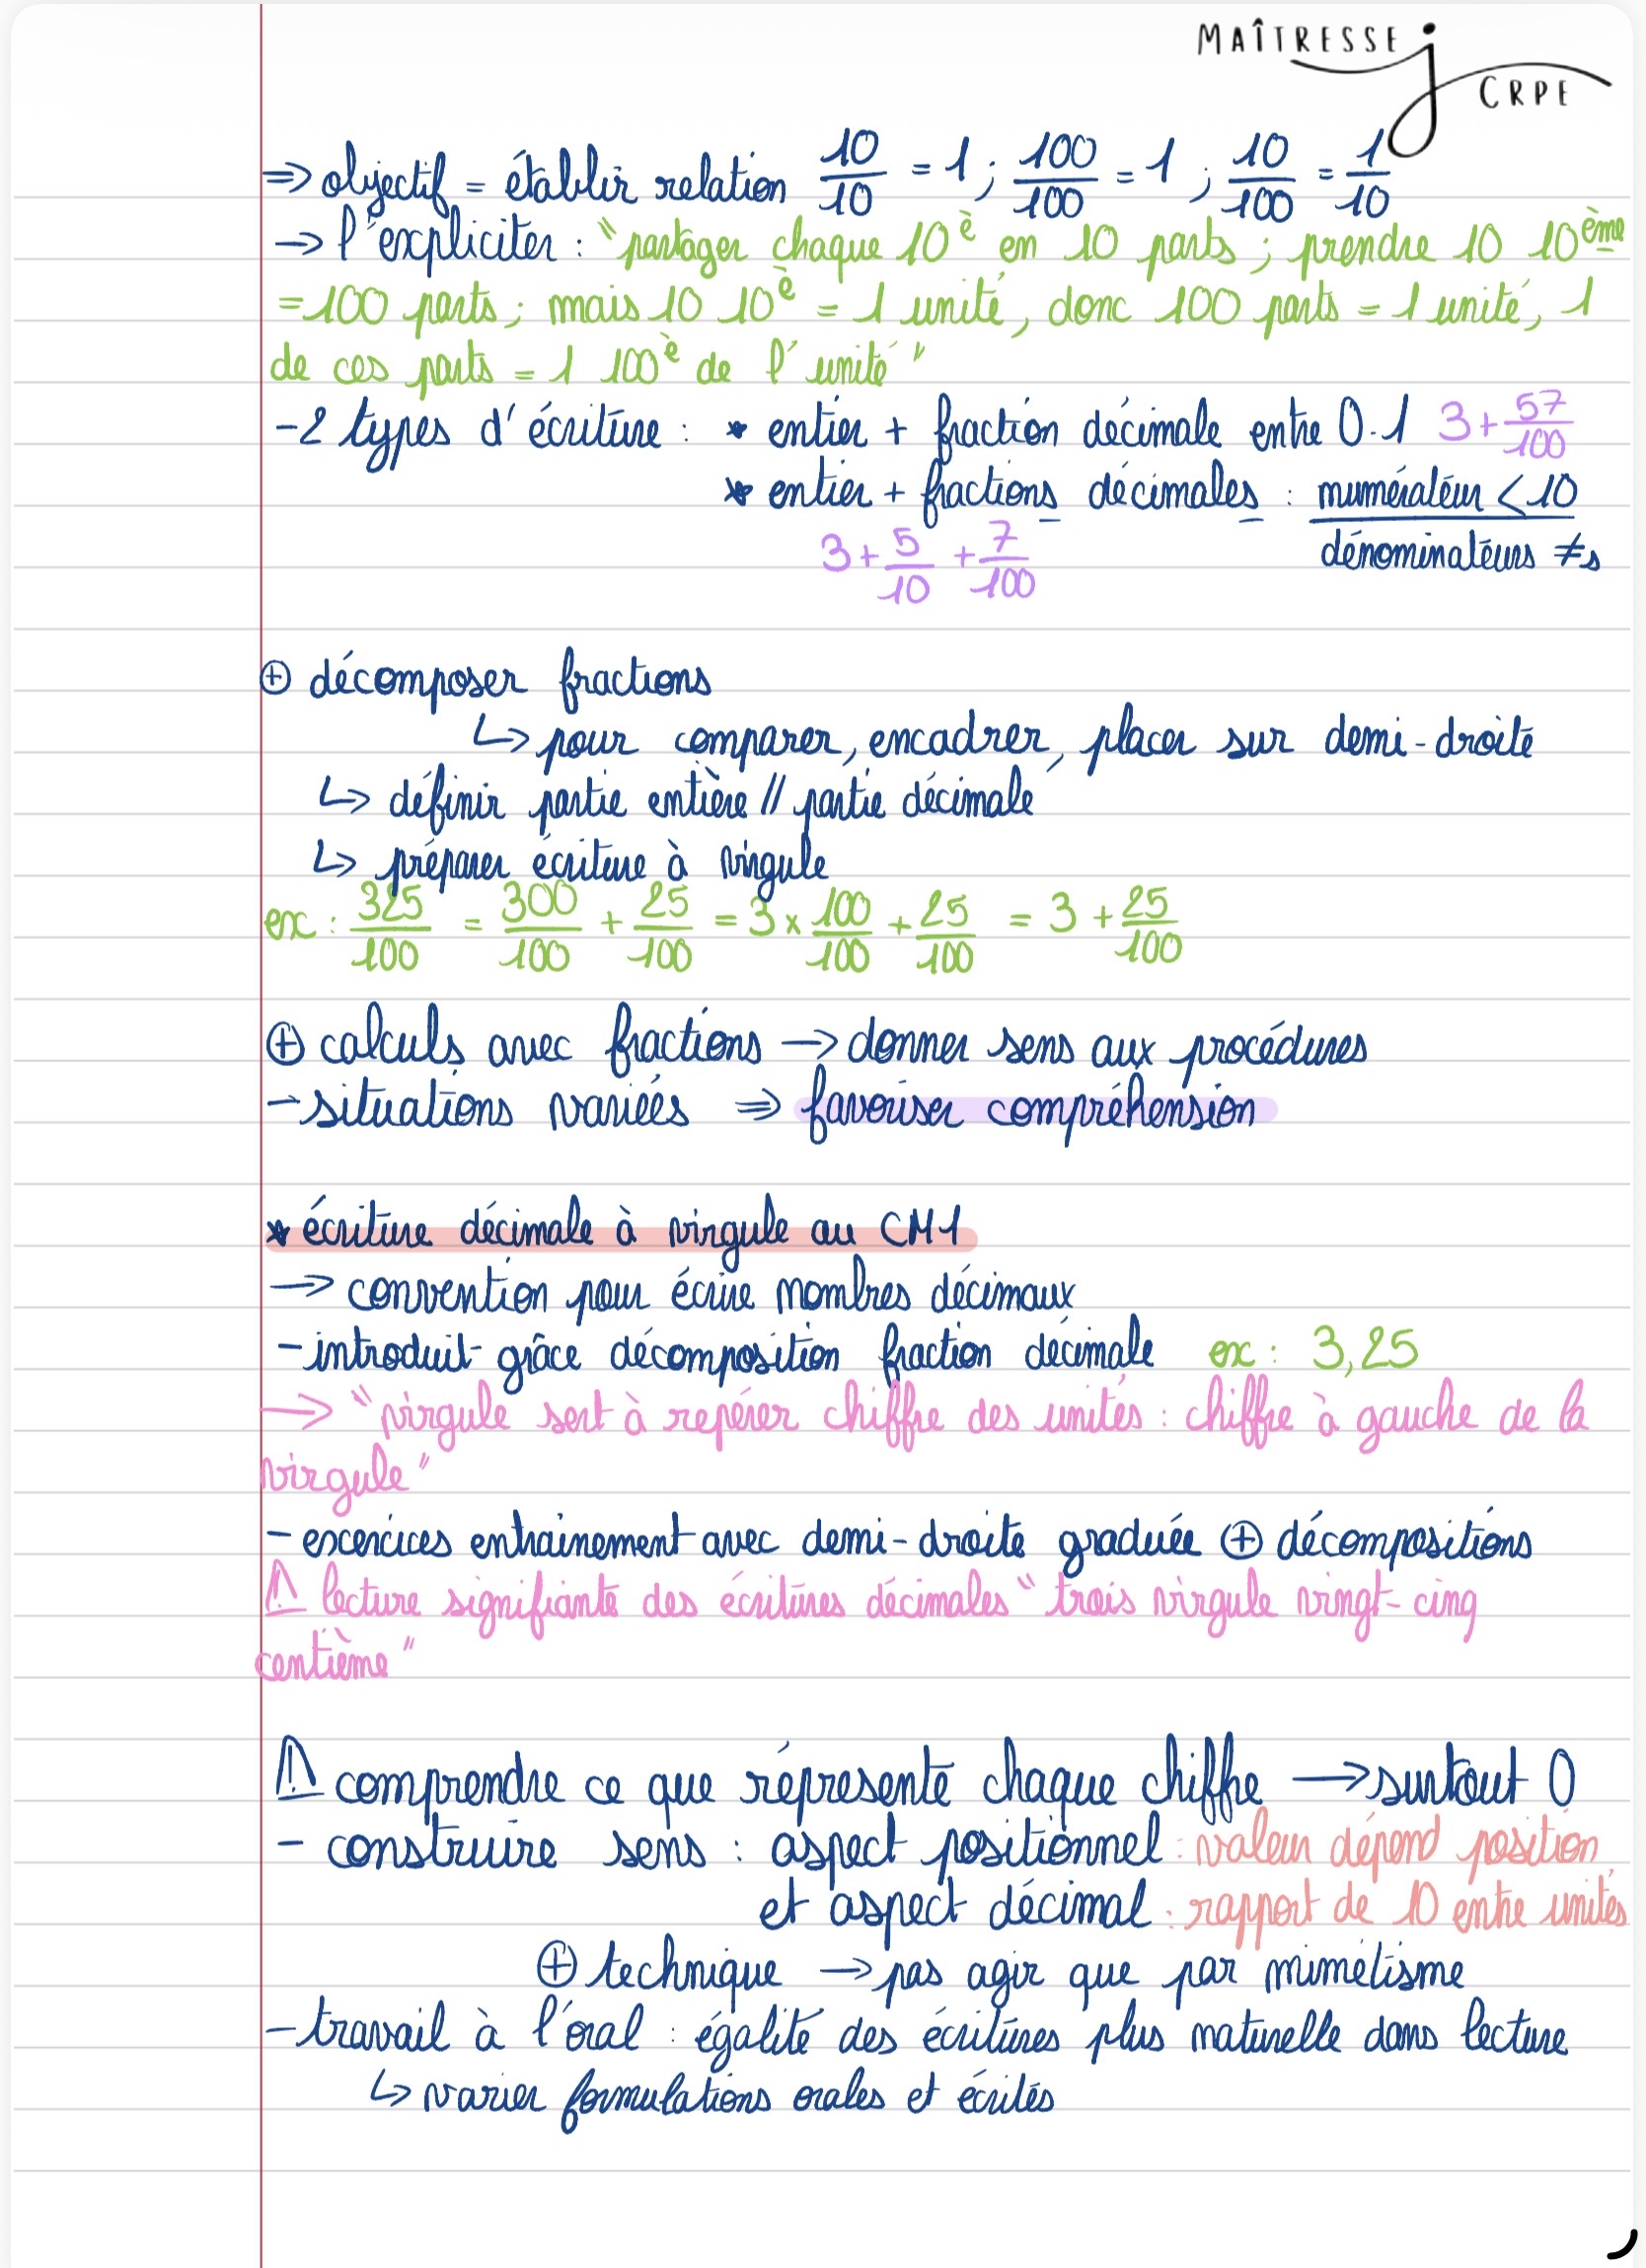 MAÎTRESSE J CRPE
⇒ objectif = établir relation 10/10 = 1 ; 100/100 = 1 ; 10/100 = 1/10
→ l'expliciter : "partager chaque 10è en 10 parts ; prendre 10 10ème
= 100 parts ; mais 10 10è = 1 unité, donc 100 parts = 1 unité, 1
de ces parts = 1 100è de l'unité"
- 2 types d'écriture : * entier + fraction décimale entre 0.1 3 + 57/100
* entier + fractions décimales : numérateur < 10
dénominateurs ≠s
3 + 5/10 + 7/100
⊕ décomposer fractions
↳ pour comparer, encadrer, placer sur demi-droite
↳ définir partie entière // partie décimale
↳ préparer écriture à virgule
ex : 325/100 = 300/100 + 25/100 = 3 x 100/100 + 25/100 = 3 + 25/100
⊕ calculs avec fractions → donner sens aux procédures
- situations variées ⇒ favoriser compréhension
* écriture décimale à virgule au CM1
→ convention pour écrire nombres décimaux
- introduit grâce décomposition fraction décimale ex : 3,25
→ "virgule sert à repérer chiffre des unités : chiffre à gauche de la
virgule"
- excercices entraînement avec demi-droite graduée ⊕ décompositions
⚠ lecture signifiante des écritures décimales "trois virgule vingt-cinq
centième"
⚠ comprendre ce que réprésente chaque chiffre → surtout 0
- construire sens : aspect positionnel : valeur dépend position
et aspect décimal : rapport de 10 entre unités
⊕ technique → pas agir que par mimétisme
- travail à l'oral : égalité des écritures plus naturelle dans lecture
↳ varier formulations orales et écrites